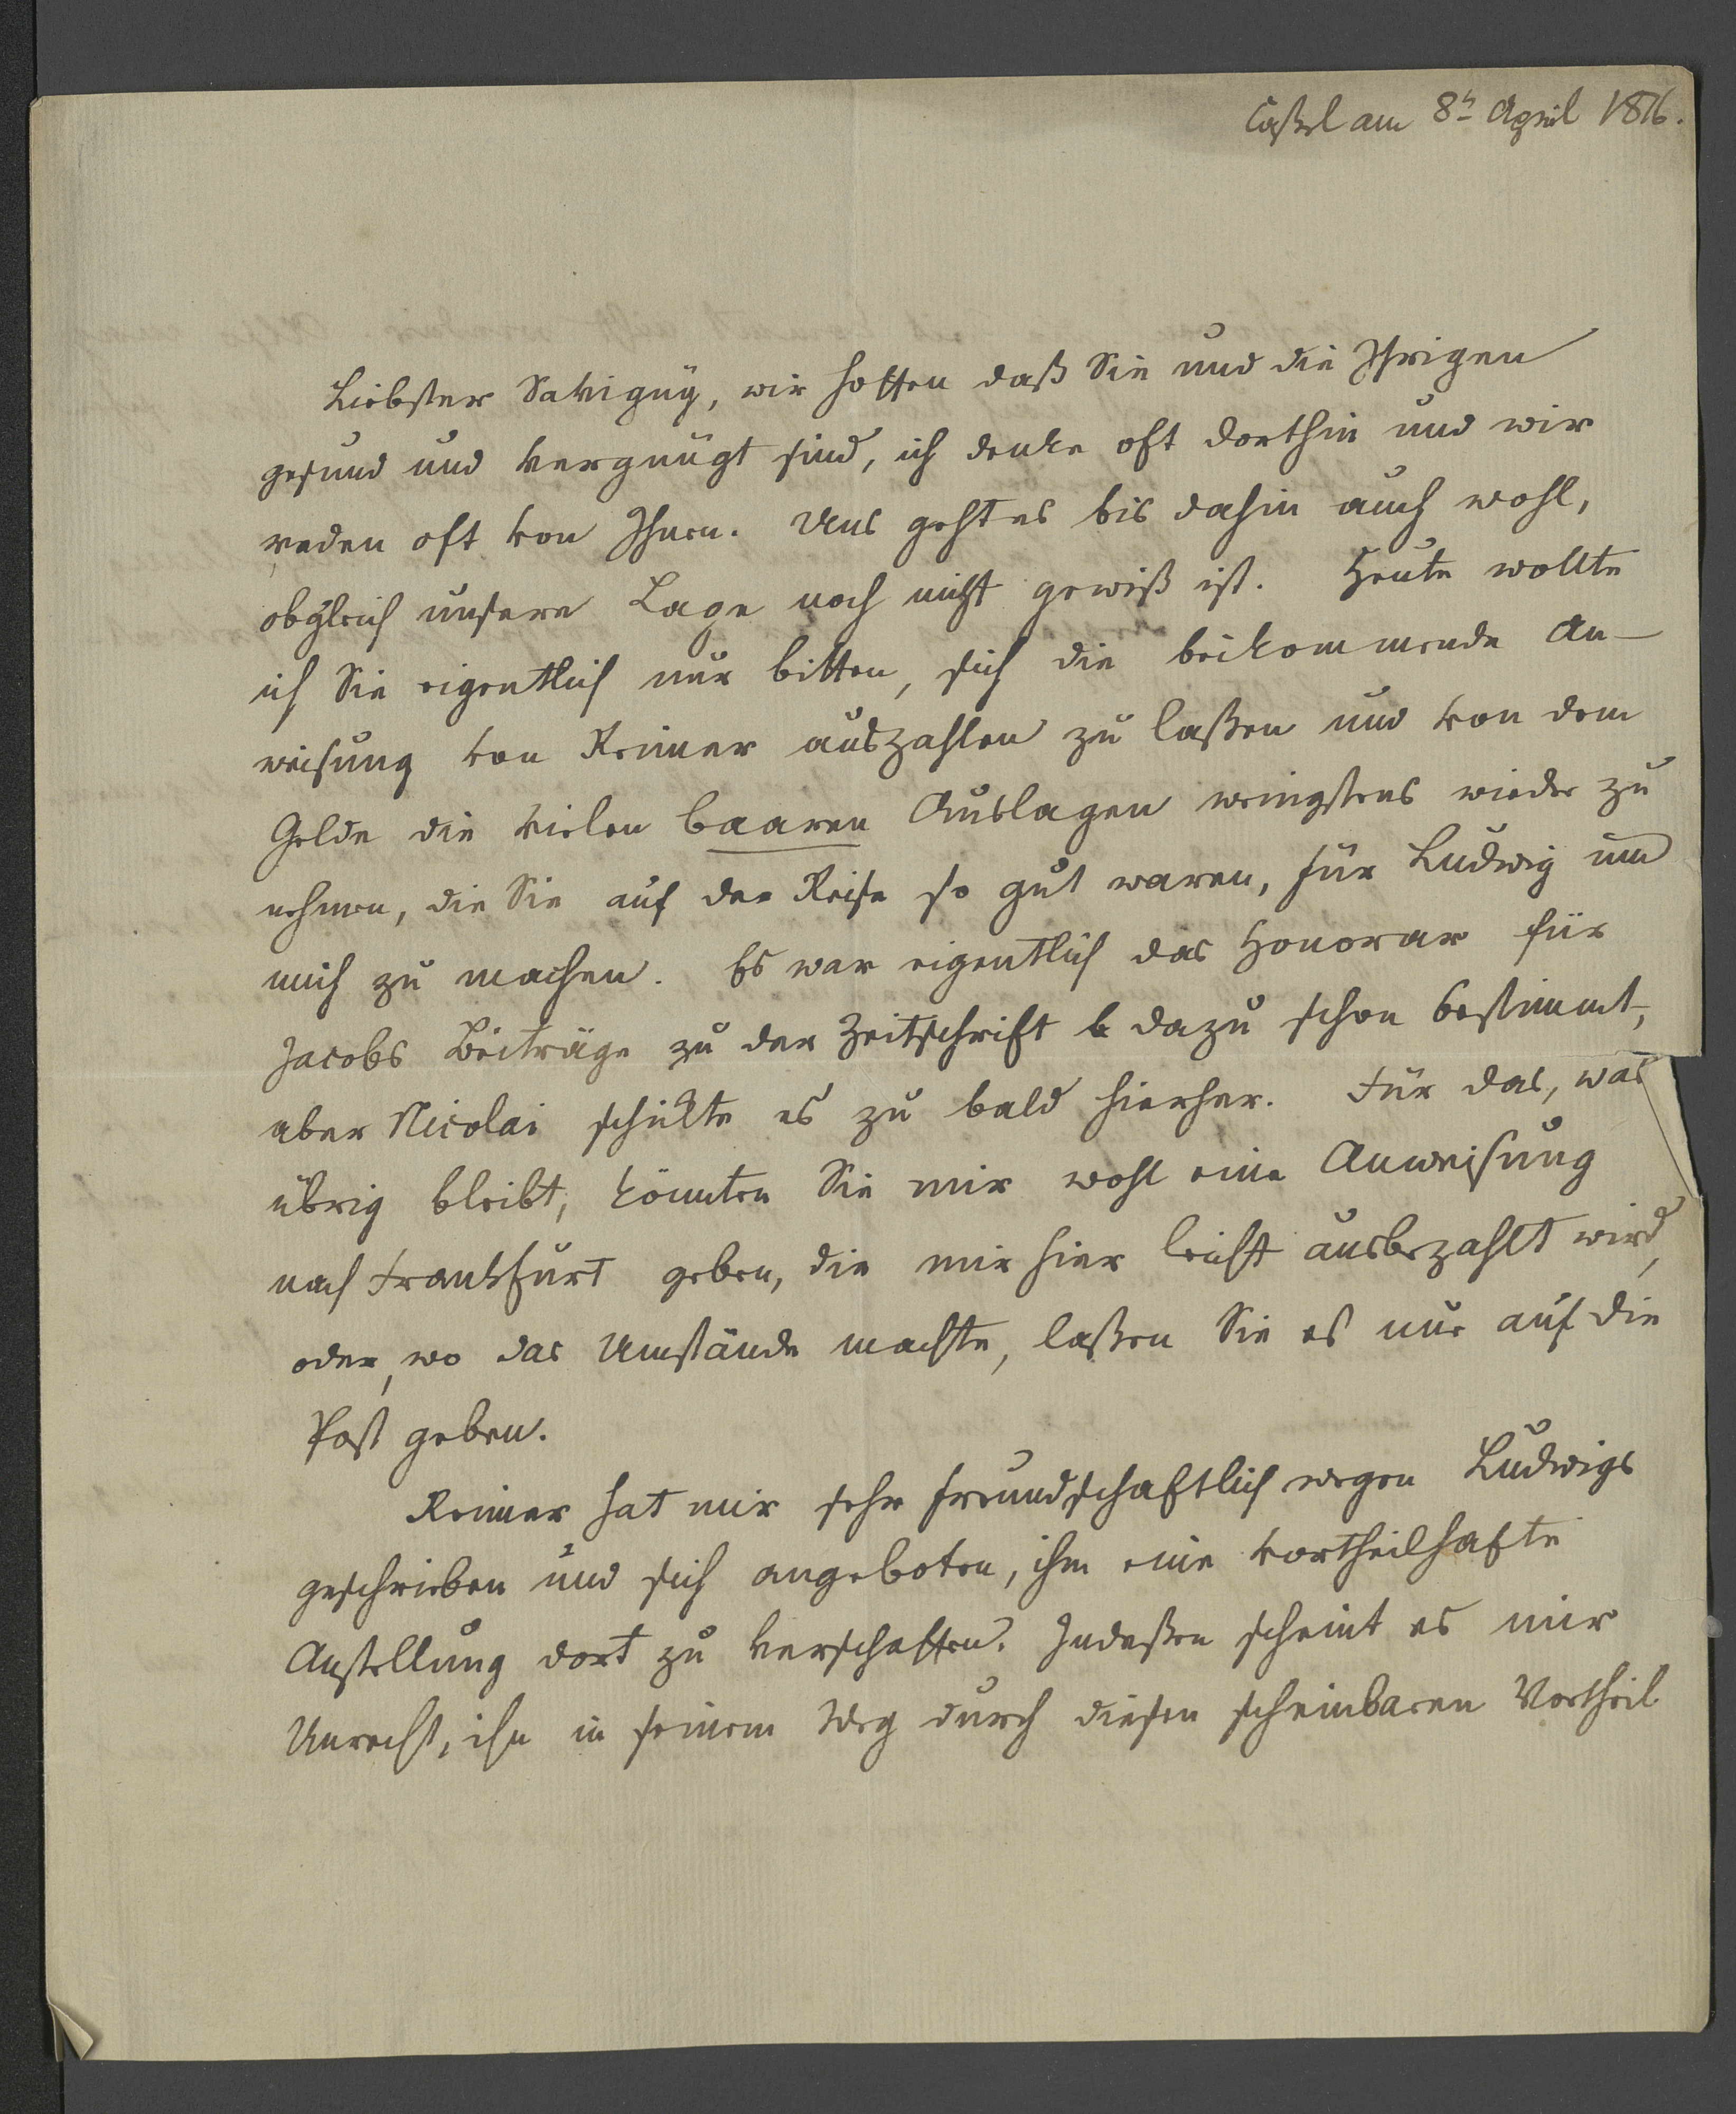 Caßel am 8t April 1816.
Liebster Savigny, wir hoffen daß Sie und die Ihrigen
gesund und vergnügt sind, ich denke oft dorthin und wir
reden oft von Ihnen. Uns geht es bis dahin auch wohl,
obgleich unsere Lage noch nicht gewiß ist. Heute wollte
ich Sie eigentlich nur bitten, sich die beikommende An-
weisung von Reimer auszahlen zu laßen und von dem
Gelde die vielen baaren Auslagen wenigstens wieder zu
nehmen, die Sie auf der Reise so gut waren, für Ludwig und
mich zu machen. Es war eigentlich das Honorar für
Jacobs Beiträge zu der Zeitschrift dazu schon bestimmt,
aber Nicolai schickte es zu bald hierher. Für das, was
übrig bleibt, könnten Sie mir wohl eine Anweisung
nach Frankfurt geben, die mir hier leicht ausbezahlt wird,
oder, wo das Umstände machte, laßen Sie es nur auf die
Post geben.
Reimer hat mir sehr freundschaftlich wegen Ludwigs
geschrieben und sich angeboten, ihm eine vortheilhafte
Anstellung dort zu verschaffen. Indeßen scheint es mir
Unrecht, ihn in seinem Weg durch diesen scheinbaren Vortheil